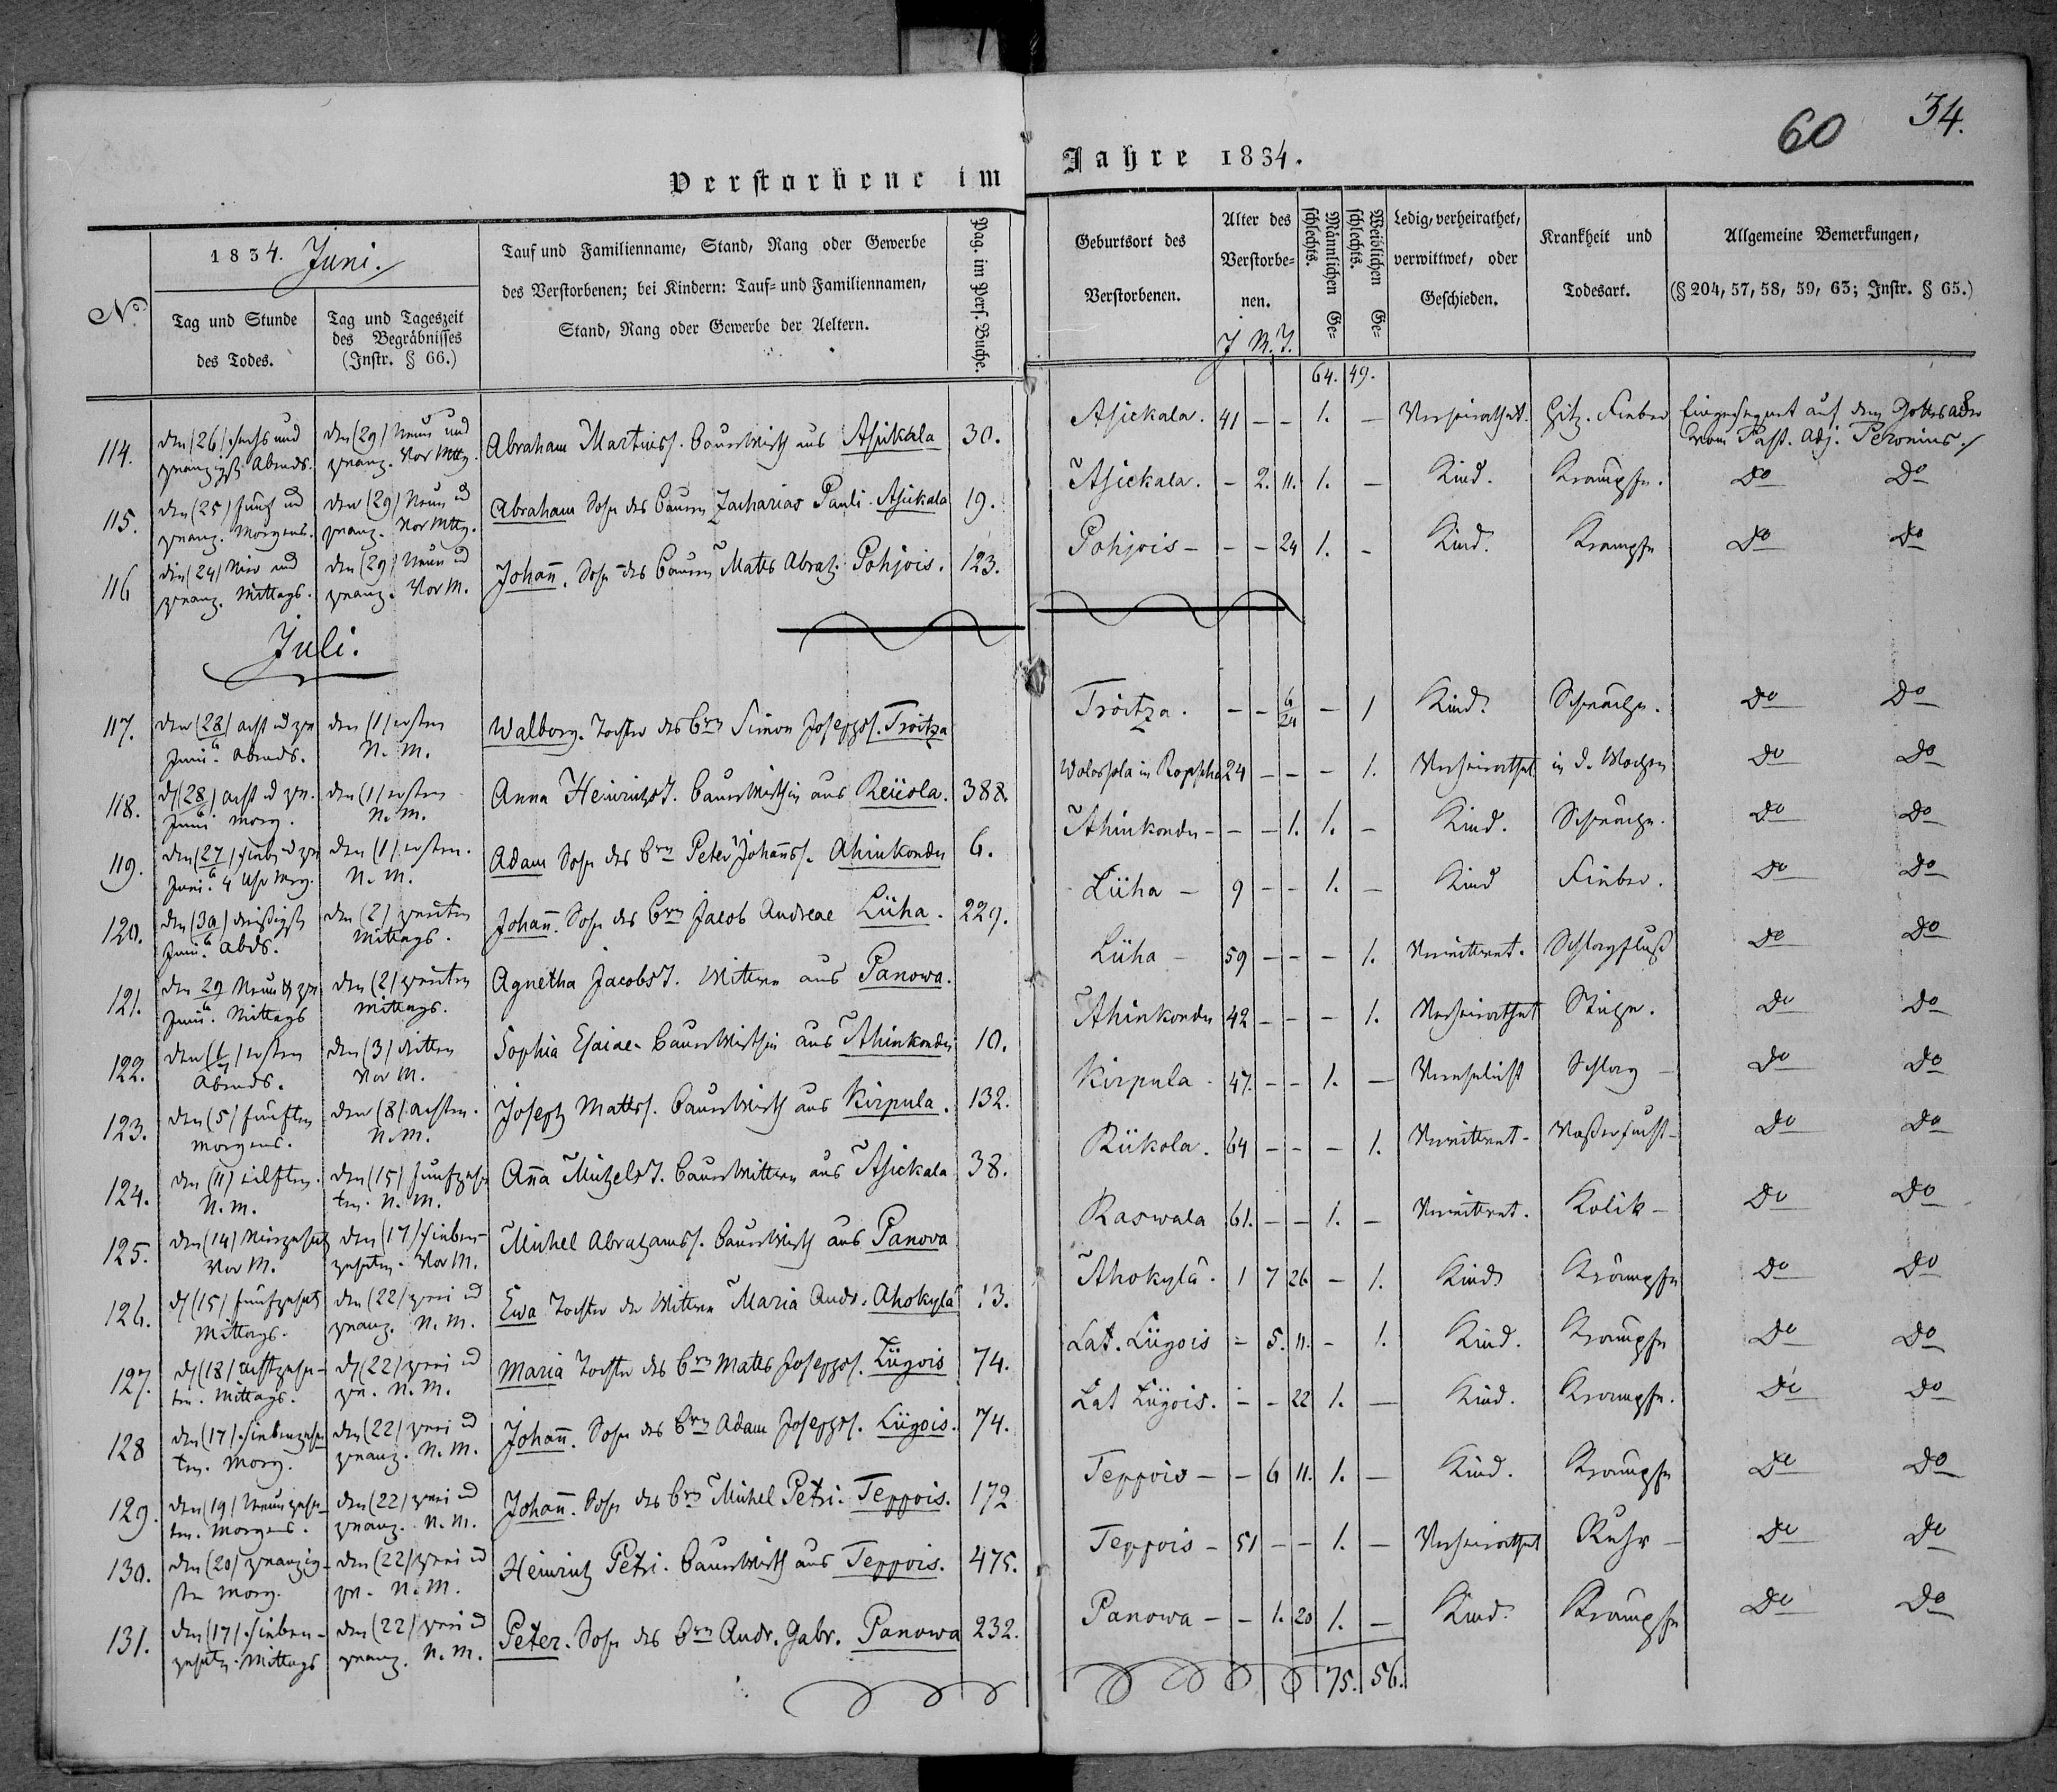 34.
60
Verstorbene im Jahre 1834.
No.
1834. Juni.
Tag und Stunde
des Todes.
Tag und Tageszeit
des Begräbnisses
(Instr. § 66.)
Tauf und Familienname, Stand, Rang oder Gewerbe
des Verstorbenen; bei Kindern: Tauf- und Familiennamen,
Stand, Rang oder Gewerbe der Aeltern.
Pag. im Pers. Buche.
Geburtsort des
Verstorbenen.
Alter des
Verstorbe-
nen.
J M. T.
Männlichen Ge-
schlechts.
Weiblichen Ge-
schlechts.
Ledig, verheirathet,
verwittwet, oder
Geschieden.
Krankheit und
Todesart.
Allgemeine Bemerkungen,
(§ 204, 57, 58, 59, 63; Instr. § 65.)
64. 49.
114. den (26) sechs und den (29) Neun und Abraham Martins. Bauerwirth aus Asikala 30. Asickala. 41 – – 1. – Verheirathet. Hitz. Fieber Eingesegnet auf dem Gottesacker
zwanzigst. Abends. zwanz. Vor Mttg. vom Past. Adj. Peronius.
115. den (25) fünf ud den (29) Neun ud Abraham Sohn des Bauern Zacharias Pauli. Asickala 19. Asickala. – 2. 11. 1. – Kind. Krämpfe. Do Do
zwanz. Morgens. zwanz. Vor Mttg.
116 den (24) vier und den (29) Neun ud Johann. Sohn des Bauern Matts Abrah. Pohjois. 123. Pohjois – – – 24 1. – Kind. Krämpfe Do Do
zwanz. Mittags. zwanz. Vor M.
Juli.
117. den (28) acht ud zw. den (1) ersten Walborg. Tochter des Brn Simon Josephs. Troitza Troitza. – – 6/24 – 1 Kind. Schwäche. Do Do
Juni. Abends. N. M.
118. d (28) acht ud zw. den (1) ersten Anna Heinrichst. Bauerwirthin aus Reiiola. 388. Wolossola in Ropscha 24 – – – 1. Verheirathet in d. Wochen Do Do
Juni. Morg. N. M.
119. den (27) sieb. ud zw den (1) ersten. Adam Sohn des Brn Peter Johanns. Ahinkondu 6. Ahinkondu – – – 1. 1. – Kind. Schwäche. Do Do
Juni. 4 Uhr Mrg. N. M.
120. den (30) dreißigst den (2) zweiten Johann. Sohn des Brn Jacob Andreae Lüha. 229. Lüha – 9 – – 1. – Kind Fieber. Do Do
Juni. Abds. Mittags.
121. den 29 Neun u zw den (2) zweiten Agnetha Jacobst. Wittwe aus Panowa. Lüha – 59 – – – 1. Verwittwet. Schlagfluß Do Do
Juni. Mittags Mittags.
122. den (1) ersten den (3) dritten Sophia Esaiae. Bauerwirthin aus Ahinkondu 10. Ahinkondu 42 – – – 1. Verheirathet Do Do
Abends. Vor M.
123. den (5) fünften den (8) achten. Joseph Matts. Bauerwirth aus Kirpula. 132. Kirpula – 47. – – 1. – Verehelicht Schlag – Do Do
Morgens. N. M.
124. den (11) eilften. den (15) fünfzehn Anna Michelst. Bauerwittwe aus Asickala 38. Rükola. 64 – – – 1. Verwittwet – Waßersucht – Do Do
N. M. ten. N. M.
125. den (14) vierzehnt den (17) sieben- Michel Abrahams. Bauerwirth aus Panova Raswala 61. – – 1. – Verwittwet. Kolik – Do Do
Vor M. zehnten. Vor M.
126. d (15) fünfzehnt den (22) zwei ud Ewa Tochter der Wittwe Maria Andr. Ahokylä 13. Ahokylä. 1 7 26 – 1. Kind Krämpfe Do Do
Mittags. zwanz. N. M.
127. d (18) achtzehn- d (22) zwei ud Maria Tochter des Brn Matts Josephs. Liigois 74. Lat. Liigois – 5. 11. – 1. Kind. Krämpfe Do Do
ten. Mittags. zw. N. M.
128 den (17) siebenzehn den (22) zwei ud Johann. Sohn des Brn Adam Josephs. Liigois. 74. Lat Liigois. – – 22 1. – Kind. Krämpfe. Do Do
ten. Morg. zwanz. N. M.
129. den (19) Neunzehn- den (22) zwei ud Johann. Sohn des Brn Michel Petri. Teppois. 172 Teppois – – 6 11. 1. – Kind. Krämpfe Do Do
ten. Morgens. zwanz. N. M.
130. den (20) zwanzig- den (22) zwei ud Heinrich Petri. Bauerwirth aus Teppois. 475. Teppois – 51 – – 1. – Verheirathet Ruhr – Do Do
sten Morg. zw. N. M.
131. den (17) sieben- den (22) zwei ud Peter. Sohn des Brn Andr. Gabr. Panowa 232. Panowa – – 1. 20 1. – Kind. Krämpfe Do Do
zehnten. Mittags zwanz. N. M.
75. 56.